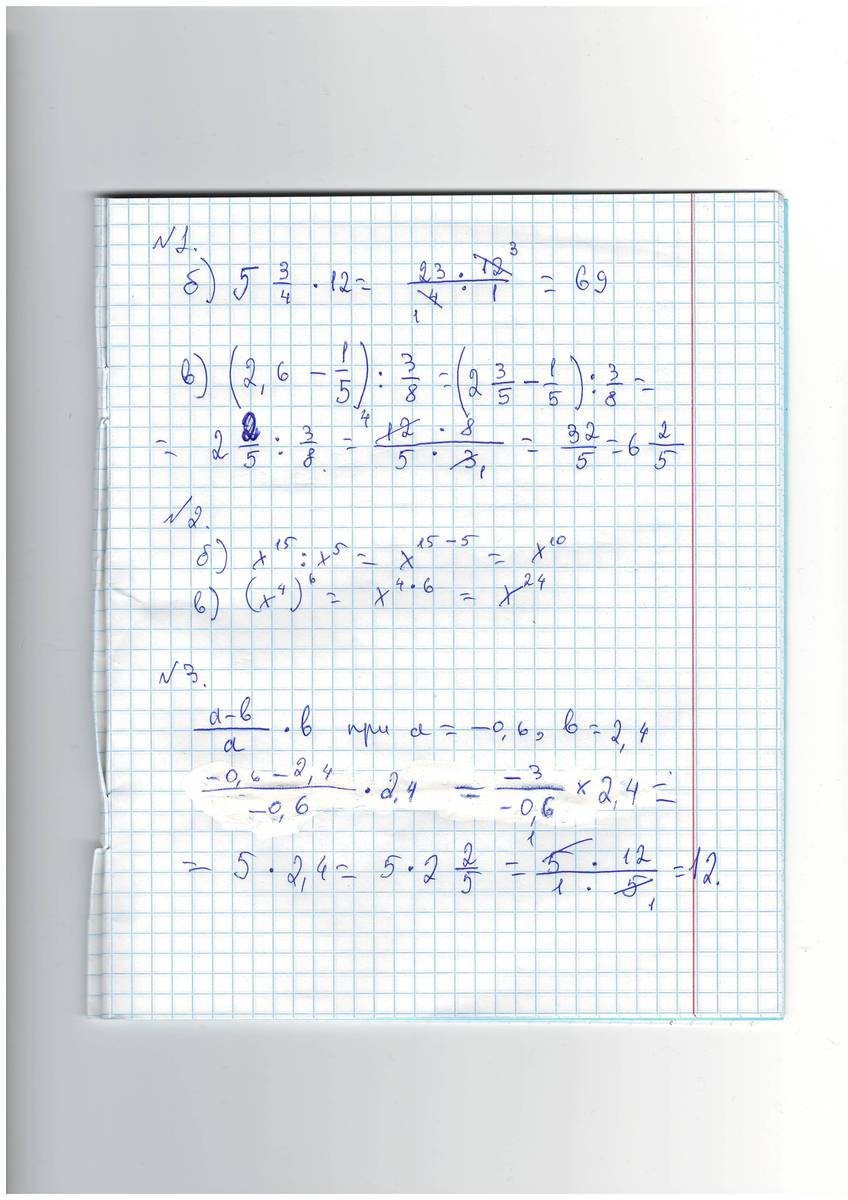 №1.
б) 5 3/4 · 12 = (23 · 12 3)/(1 4 · 1) = 69
в) (2,6 - 1/5) : 3/8 = (2 3/5 - 1/5) : 3/8 =
= 2 2/5 : 3/8 = (4 12 · 8)/(5 · 3 1) = 32/5 = 6 2/5
№2.
б) x^15 : x^5 = x^(15-5) = x^10
в) (x^4)^6 = x^(4·6) = x^24
№3.
(a-b)/a · b при a = -0,6, b = 2,4
(-0,6 - 2,4)/(-0,6) · 2,4 = (-3)/(-0,6) × 2,4 =
= 5 · 2,4 = 5 · 2 2/5 = (1 5 · 12)/(1 · 5 1) = 12.